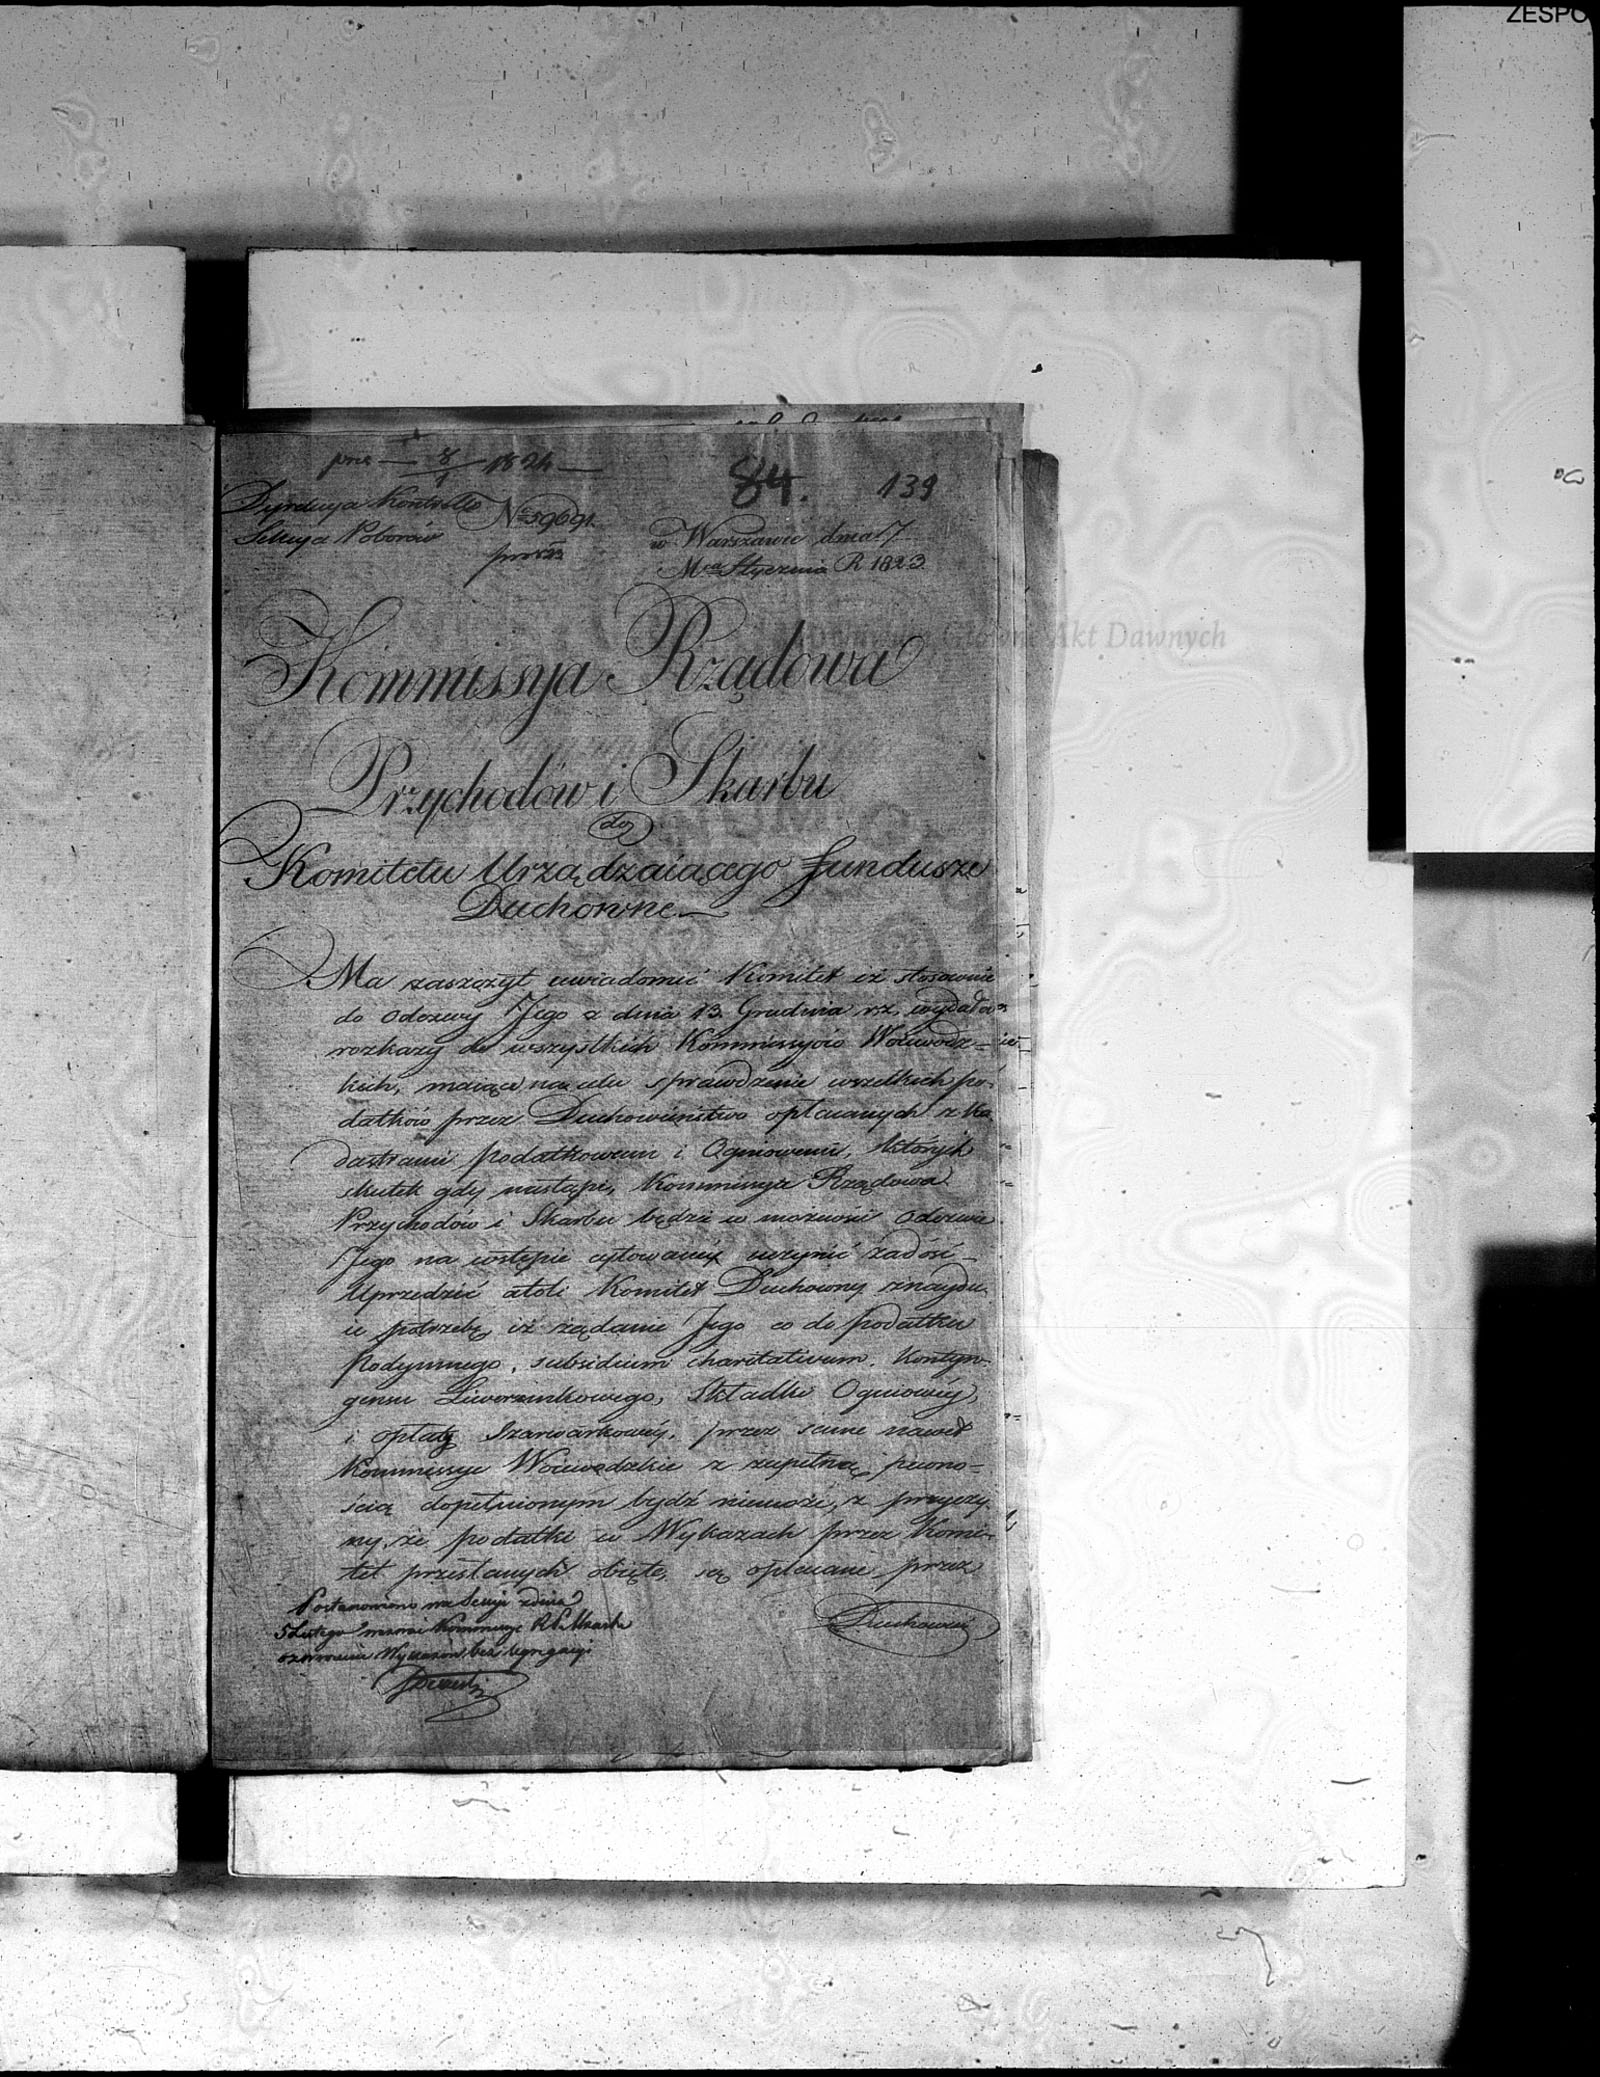 ZESPO
84. 139
Dyrekcya Kontrolli No 59691.
Sekcya Poborów
w Warszawie dnia 17
Mca Stycznia R 1823
Archiwum Główne Akt Dawnych
Kommissya Rządowa
Przychodów i Skarbu
do
Komitetu Urządzaiącego Fundusze
Duchowne
Ma zaszczyt uwiadomić Komitet iż stosownie
do odezwy Jego z dnia 13 Grudnia r.z. wydała
rozkazy do wszystkich Kommissyów Woiewódz=
kich, maiące na celu sprawdzenie wszelkich po=
datków przez Duchowieństwo opłacanych z Ka
dastrami podatkowemi i Ogniowemi, których
skutek gdy nastąpi, Kommissya Rządowa
Przychodów i Skarbu będzie w możności odezwie
Jego na wstępie cytowanéy uczynić zadość
Uprzedzić atoli Komitet Duchowny znaydu=
ie potrzebę iż żądanie Jego co do podatku
Podymnego, subsidium charitativum, Kontyn=
gensu Liwerunkowego, Składki Ogniowéy,
i opłaty Szarwarkowéy, przez same nawet
Kommissye Woiewódzkie z zupełną pewno=
ścią dopełnionym bydź niemoże, z przyczy
ny, że podatki w Wykazach przez Komi=
tet przesłanych obięte, są opłacane przez
Duchowień
Postanowiono na Sessyi z dnia
5 Lutego Kommissyę R. P. i Skarbu
Wykazów bez